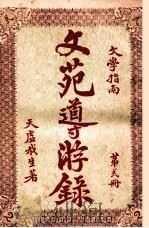 文學指南
文苑導游錄
第弍冊
天虛我生著